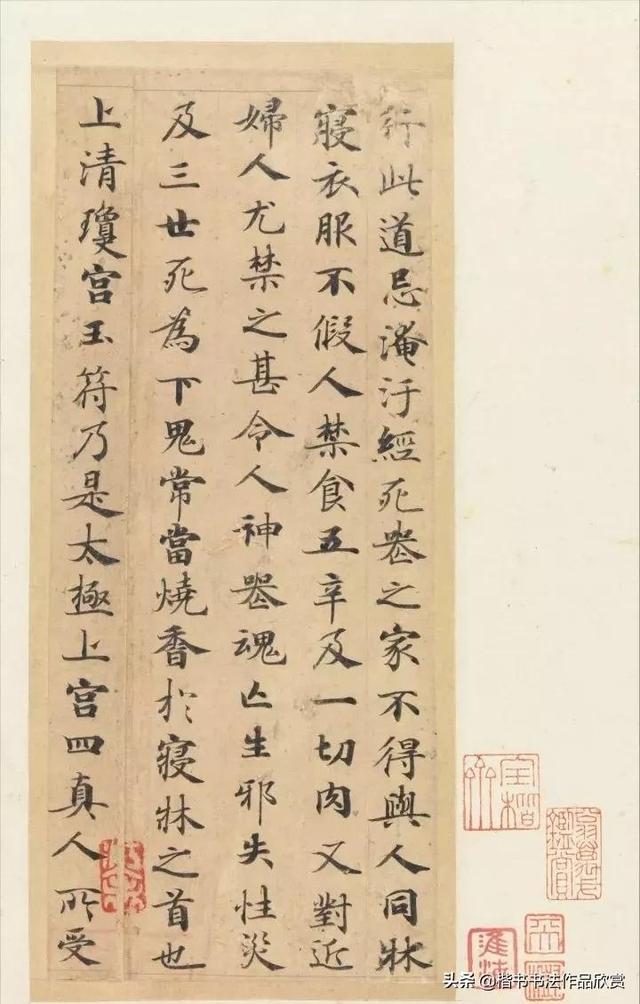 行此道忌淹汙經死喪之家不得與人同牀
寢衣服不假人禁食五辛及一切肉又對近
婦人尤禁之甚令人神喪魂亡生邪失性災
及三世死為下鬼常當燒香於寢牀之首也
上清瓊宮玉符乃是太極上宮四真人所受
头条@楷书书法作品欣赏